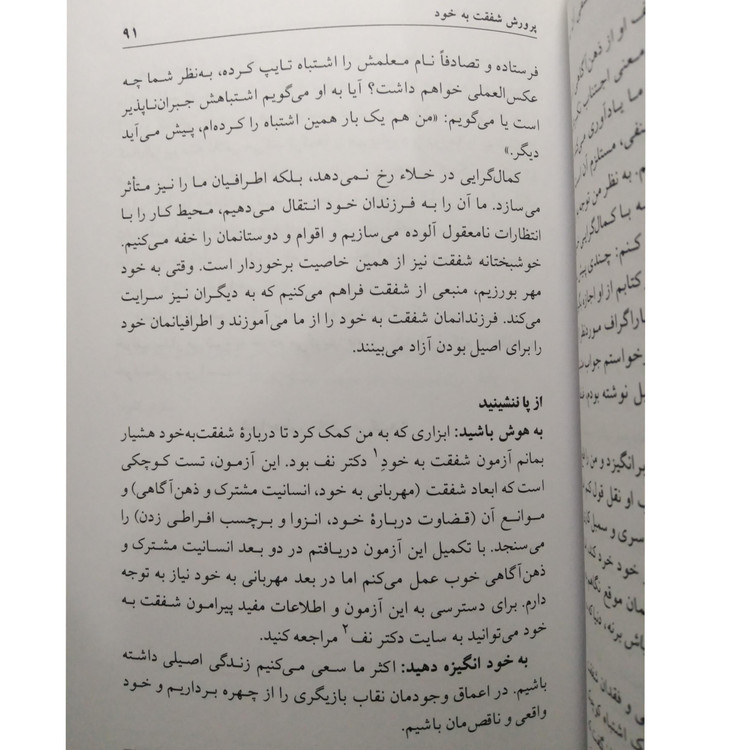 پرورش شفقت به خود
۹۱
فرستاده و تصادفاً نام معلمش را اشتباه تایپ کرده، به‌نظر شما چه
عکس‌العملی خواهم داشت؟ آیا به او می‌گویم اشتباهش جبران‌ناپذیر
است یا می‌گویم: «من هم یک بار همین اشتباه را کرده‌ام، پیش می‌آید
دیگر.»
کمال‌گرایی در خلاء رخ نمی‌دهد، بلکه اطرافیان ما را نیز متأثر
می‌سازد. ما آن را به فرزندان خود انتقال می‌دهیم، محیط کار را با
انتظارات نامعقول آلوده می‌سازیم و اقوام و دوستانمان را خفه می‌کنیم.
خوشبختانه شفقت نیز از همین خاصیت برخوردار است. وقتی به خود
مهر بورزیم، منبعی از شفقت فراهم می‌کنیم که به دیگران نیز سرایت
می‌کند. فرزندانمان شفقت به خود را از ما می‌آموزند و اطرافیانمان خود
را برای اصیل بودن آزاد می‌بینند.
از پا ننشینید
به هوش باشید: ابزاری که به من کمک کرد تا دربارهٔ شفقت‌به‌خود هشیار
بمانم آزمون شفقت به خودِ۱ دکتر نف بود. این آزمون، تست کوچکی
است که ابعاد شفقت (مهربانی به خود، انسانیت مشترک و ذهن‌آگاهی) و
موانع آن (قضاوت دربارهٔ خود، انزوا و برچسب افراطی زدن) را
می‌سنجد. با تکمیل این آزمون دریافتم در دو بعد انسانیت مشترک و
ذهن‌آگاهی خوب عمل می‌کنم اما در بعد مهربانی به خود نیاز به توجه
دارم. برای دسترسی به این آزمون و اطلاعات مفید پیرامون شفقت به
خود می‌توانید به سایت دکتر نف۲ مراجعه کنید.
به خود انگیزه دهید: اکثر ما سعی می‌کنیم زندگی اصیلی داشته
باشیم. در اعماق وجودمان نقاب بازیگری را از چهره برداریم و خود
واقعی و ناقص‌مان باشیم.